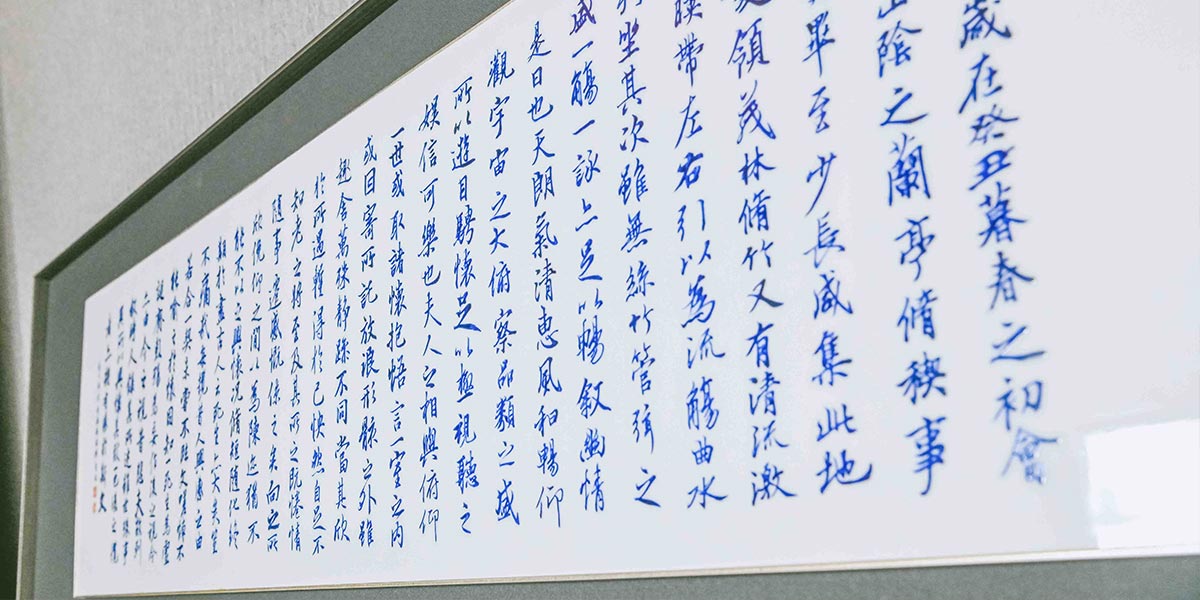 歲在癸丑暮春之初會
山陰之蘭亭脩稧事
畢至少長咸集此地
領茂林脩竹又有清流激
暎帶左右引以為流觴曲水
列坐其次雖無絲竹管弦之
盛一觴一詠亦足以暢敘幽情
是日也天朗氣清惠風和暢仰
觀宇宙之大俯察品類之盛
所以遊目騁懷足以極視聽之
娛信可樂也夫人之相與俯仰
一世或取諸懷抱悟言一室之內
或因寄所託放浪形骸之外雖
趣舍萬殊靜躁不同當其欣
於所遇蹔得於己快然自足不
知老之將至及其所之既惓情
隨事遷感慨係之矣向之所
欣俛仰之間以為陳迹猶不
能不以之興懷況脩短隨化終
期於盡古人云死生亦大矣豈
不痛哉每攬昔人興感之由
若合一契未嘗不臨文嗟悼不
能喻之於懷固知一死生為虛
誕齊彭殤為妄作後之視今
亦由今之視昔悲夫故列
敘時人錄其所述雖世殊事
異所以興懷其致一也後之攬
者亦將有感於斯文